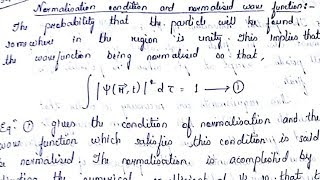 Normalisation condition and normalised wave function:-
The probability that the particle will be found
somewhere in the region is unity. This implies that
the wavefunction being normalised so that,
∫|Ψ(r⃗,t)|² dτ = 1 → ①
Eqⁿ ① gives the condition of normalisation and the
wave function which satisfies this condition is said
be normalised. The normalisation is acomplished by
the numerical